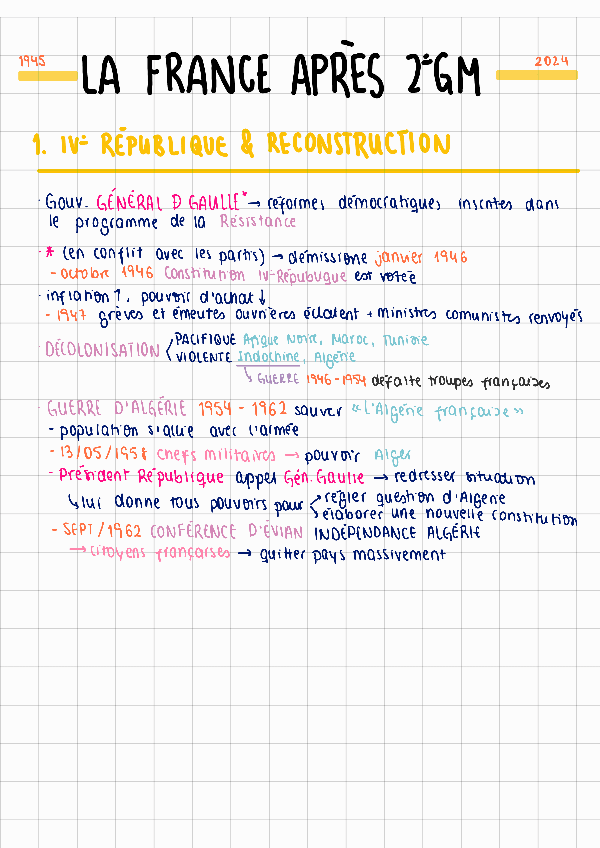 1945 LA FRANCE APRÈS 2ᵉGM 2024
1. IVᵉ RÉPUBLIQUE & RECONSTRUCTION
· Gouv. GÉNÉRAL D GAULLE* → réformes démocratiques inscrites dans
le programme de la Résistance
· * (en conflit avec les partis) → démissione janvier 1946
- octobre 1946 Constitution IV-République est votée
· inflation ↑, pouvoir d'achat ↓
- 1947 grèves et émeutes ouvrières éclatent + ministres comunistes renvoyés
· DÉCOLONISATION
PACIFIQUE Afrique Noire, Maroc, Tunisie
VIOLENTE Indochine, Algérie
↳ GUERRE 1946-1954 défaite troupes françaises
· GUERRE D'ALGÉRIE 1954 - 1962 sauver «l'Algérie française»
- population s'allie avec l'armée
- 13/05/1958 chefs militaires → pouvoir Alger
- Président République appel Gén. Gaulle → redresser situation
↳ lui donne tous pouvoirs pour
régler question d'Algerie
élaborer une nouvelle constitution
- SEPT/1962 CONFÉRENCE D'ÉVIAN INDÉPENDANCE ALGÉRIE
→ citoyens françaises → quitter pays massivement